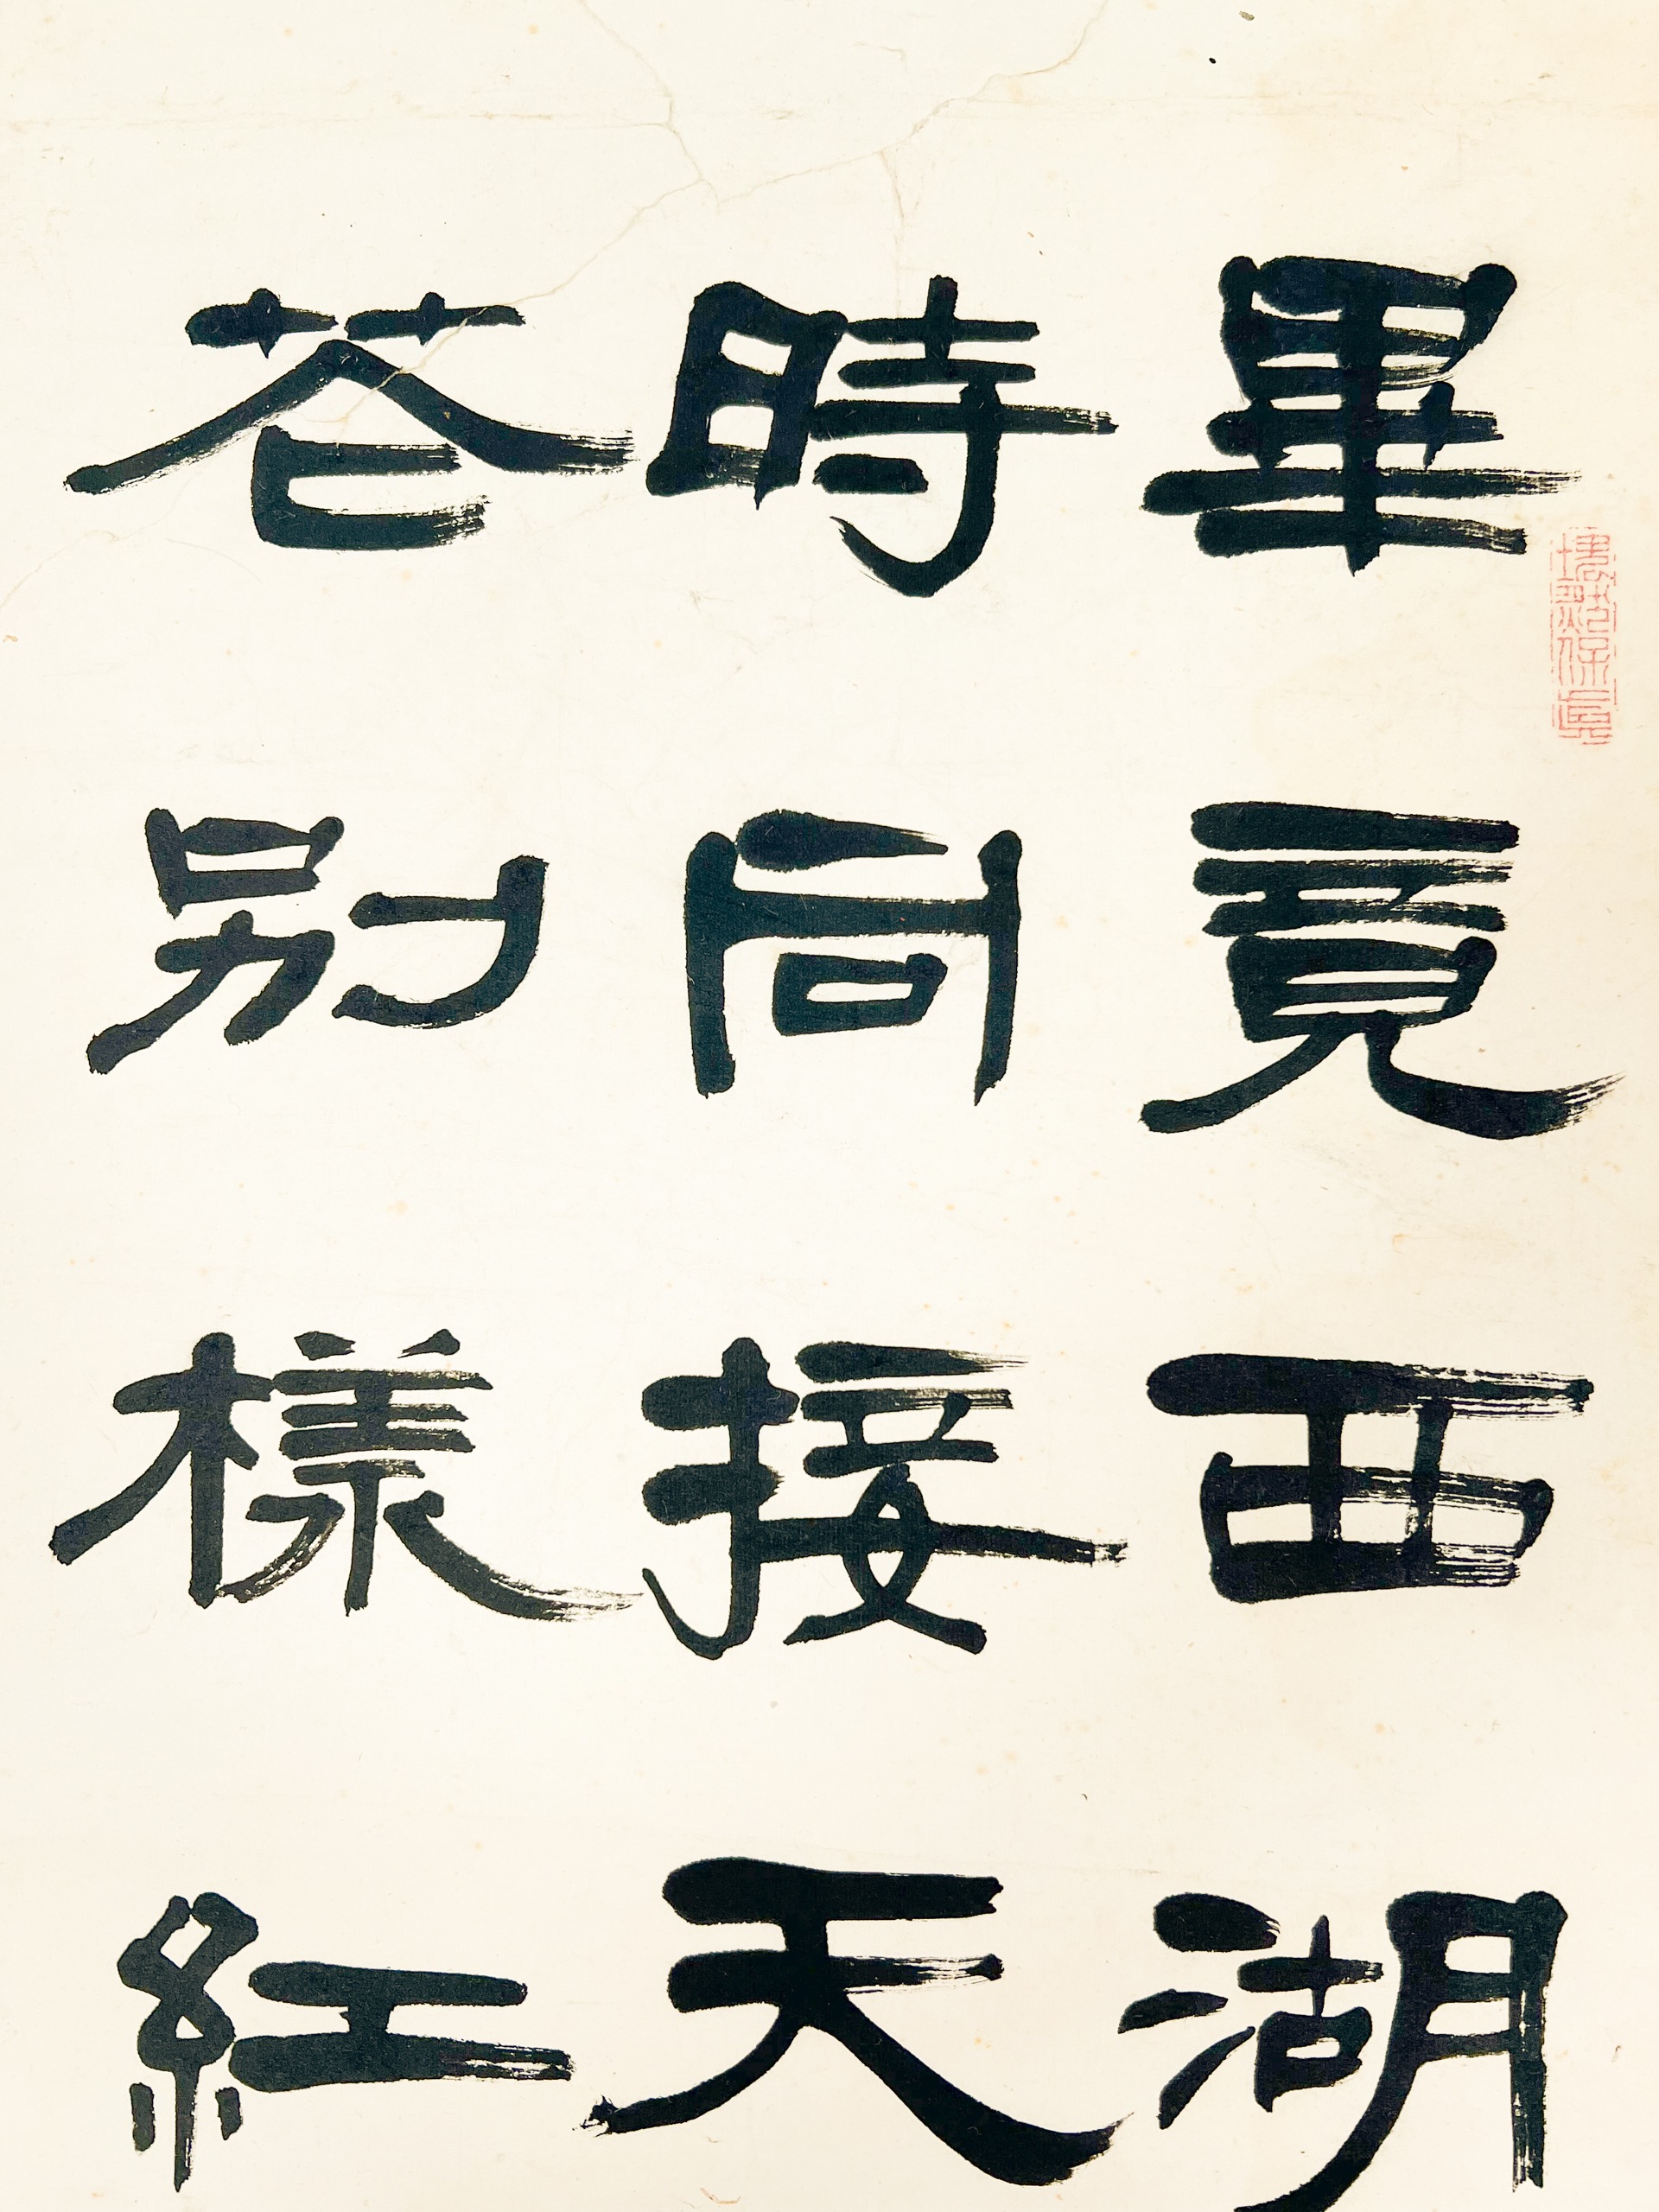 畢竟西湖
時同接天
苍別樣紅